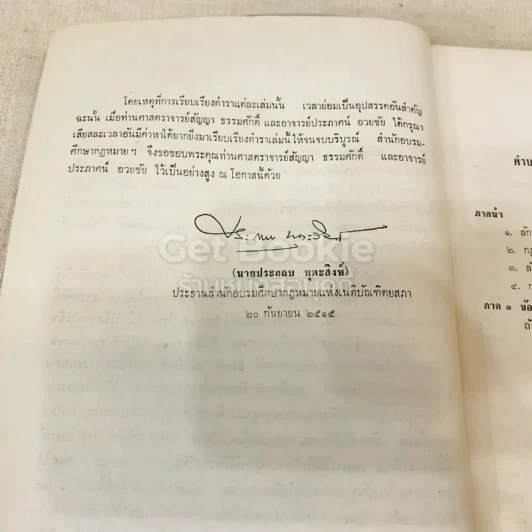 โดยเหตุที่การเรียบเรียงตำราแต่ละเล่มนั้น เวลาย่อมเป็นอุปสรรคอันสำคัญ
ฉะนั้น เมื่อท่านศาสตราจารย์สัญญา ธรรมศักดิ์ และอาจารย์ประภาศน์ อวยชัย ได้กรุณา
เสียสละเวลาอันมีค่าหาได้ยากยิ่งมาเรียบเรียงตำราเล่มนี้ให้จนจบบริบูรณ์ สำนักอบรม-
ศึกษากฎหมาย ฯ จึงขอขอบพระคุณท่านศาสตราจารย์สัญญา ธรรมศักดิ์ และอาจารย์
ประภาศน์ อวยชัย ไว้เป็นอย่างสูง ณ โอกาสนี้ด้วย
Get Bookie
ร้านหนังสือมือดี
(นายประกอบ หุตะสิงห์)
ประธานสำนักอบรมศึกษากฎหมายแห่งเนติบัณฑิตยสภา
๒๐ กันยายน ๒๕๑๕
ภาคนำ
๑.
๒.
๓.
๔.
ภาค ๑